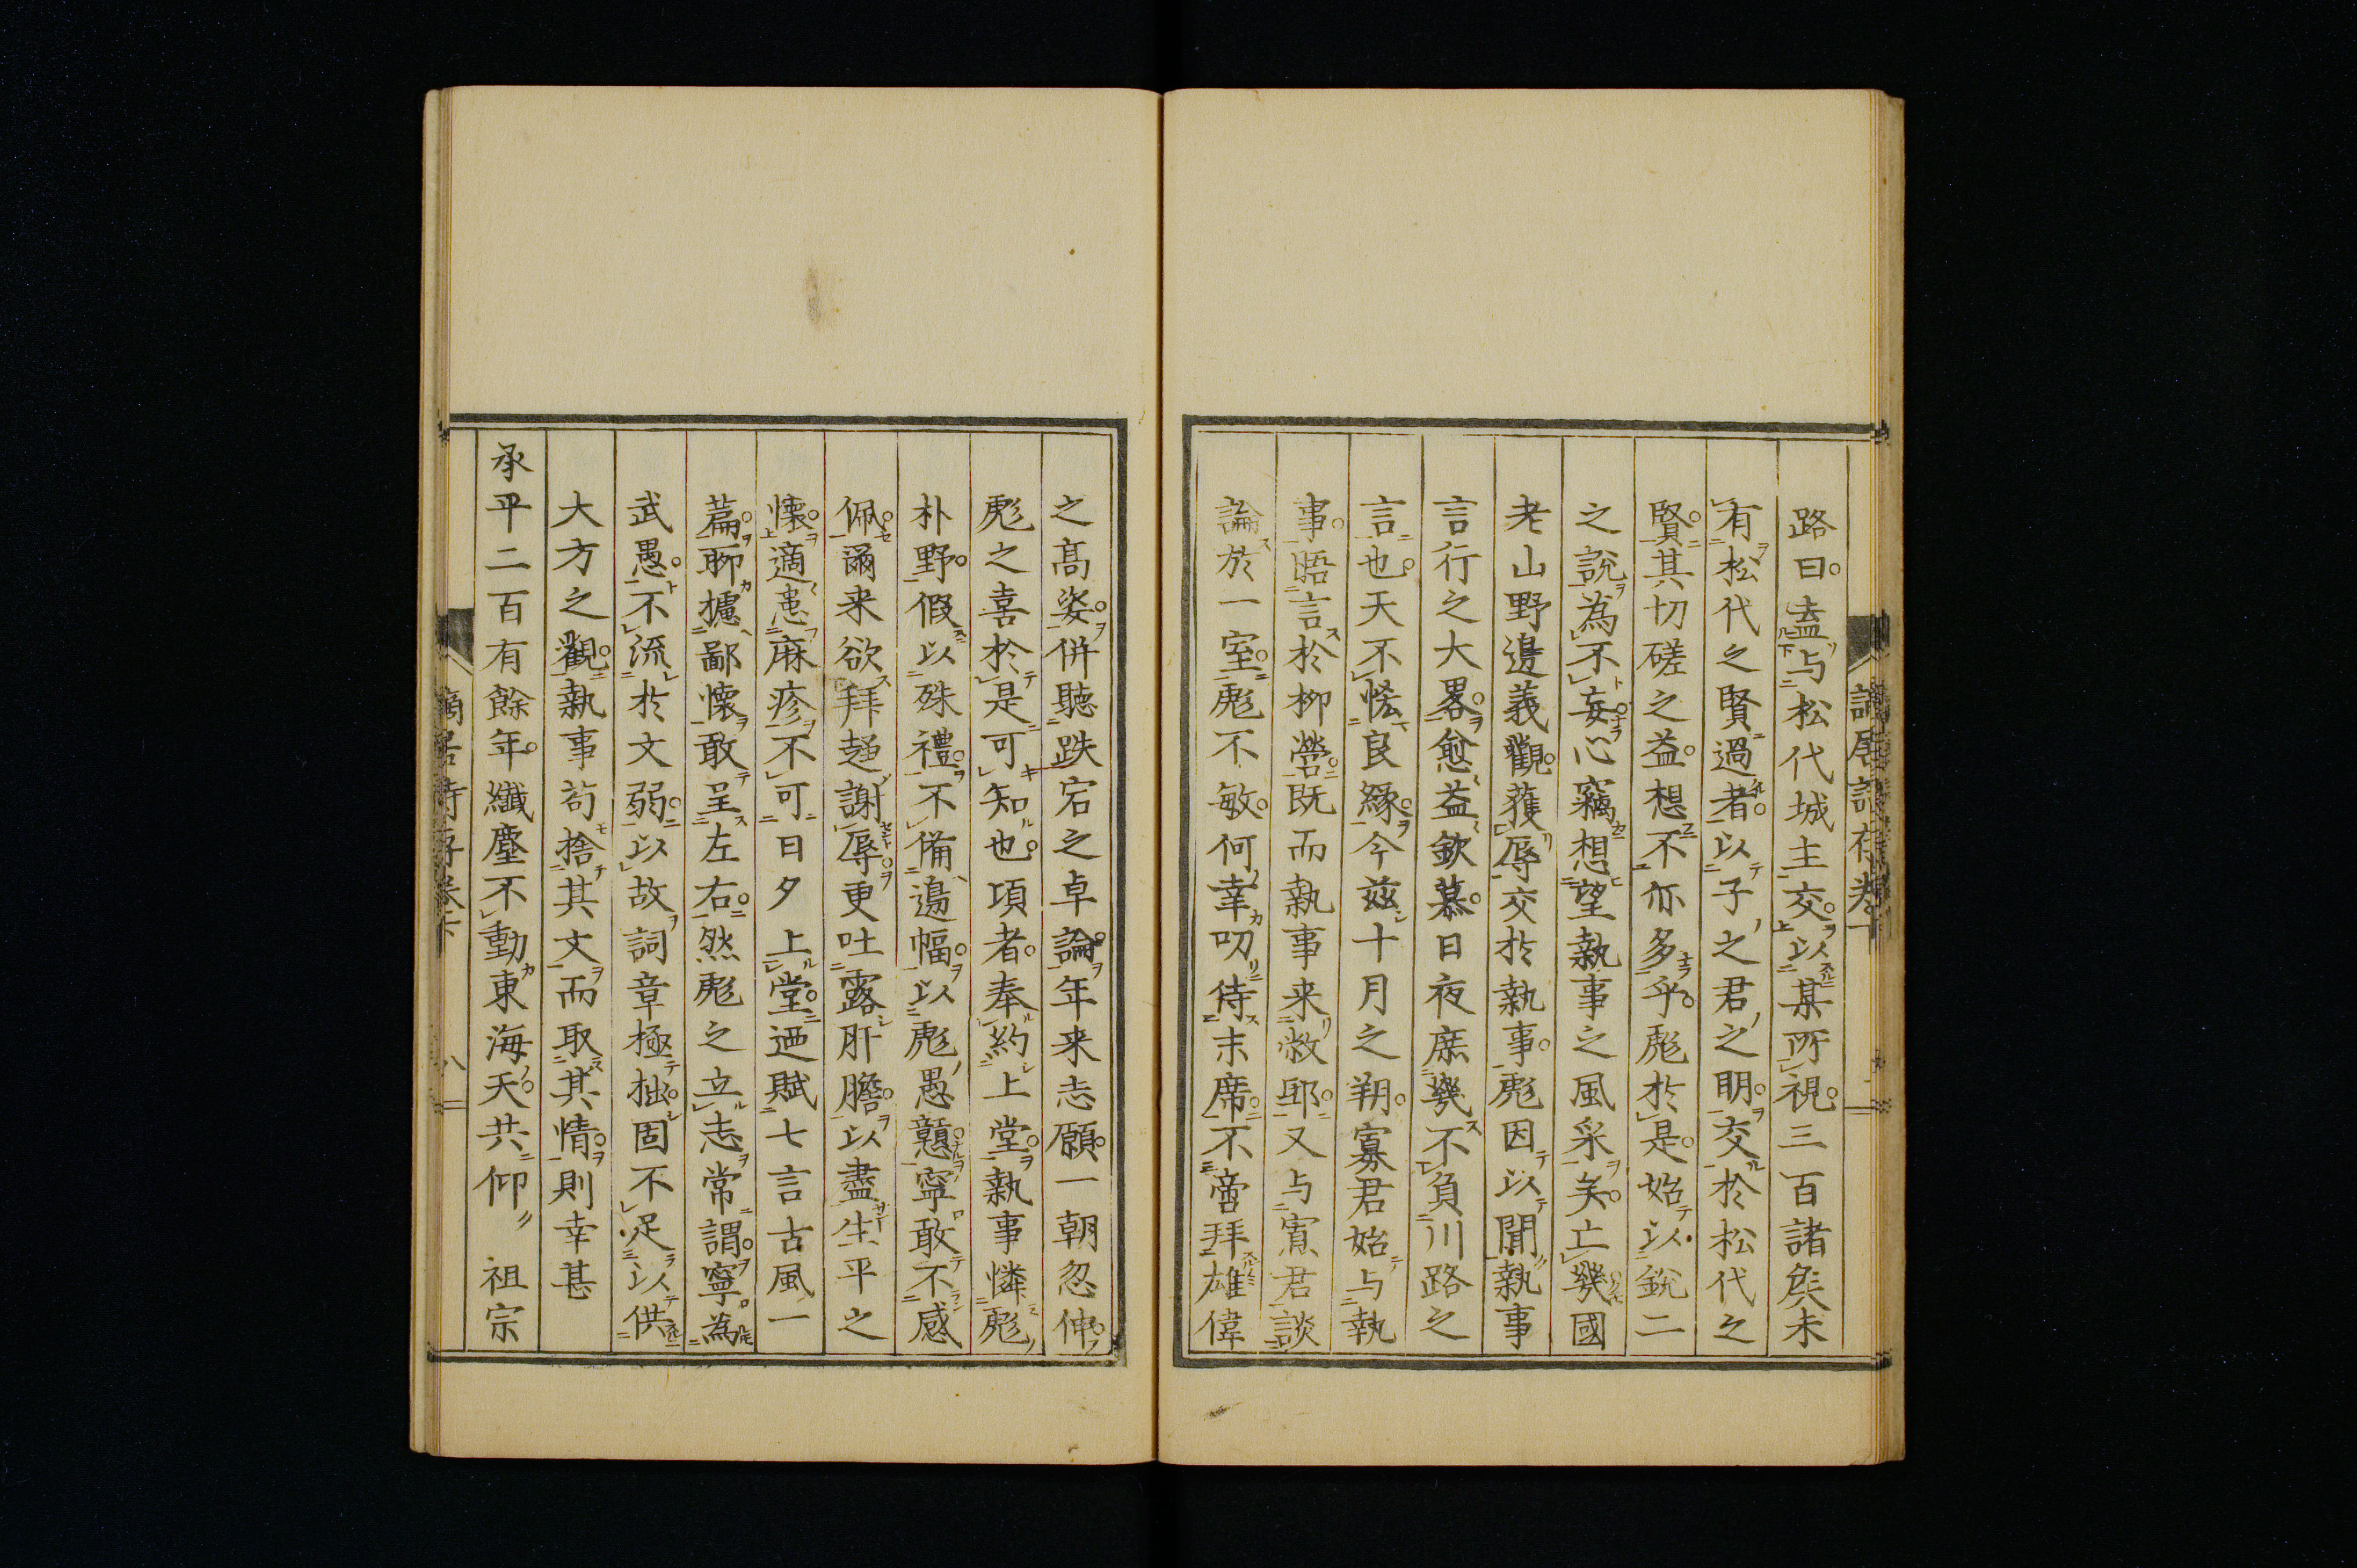 路曰盍与松代城主交以某所視三百諸矦未
有松代之賢過者以子之君之明交於松代之
賢其切磋之益想不亦多乎彪於是始以銳二
之說為不妄心竊想望執事之風采矣亡幾國
老山野邊義觀獲辱交於執事彪因以聞執事
言行之大畧愈益欽慕日夜庶幾不負川路之
言也天不慳良緣今玆十月之朔寡君始与執
事晤言於柳營既而執事来敝邸又与寡君談
論於一室彪不敏何幸叨侍末席不啻拜雄偉
之髙姿併聽跌宕之卓論年来志願一朝忽伸
彪之喜於是可知也項者奉約上堂執事憐彪
朴野假以殊禮不備邊幅以彪愚戇寧敢不感
佩爾来欲拜趍謝辱更吐露肝膽以盡生平之
懷適患麻疹不可日夕上堂迺賦七言古風一
篇聊攄鄙懷敢呈左右然彪之立志常謂寧為
武愚不流於文弱以故詞章極拙固不足以供
大方之觀執事苟捨其文而取其情則幸甚
承平二百有餘年纖塵不動東海天共仰 祖宗
八